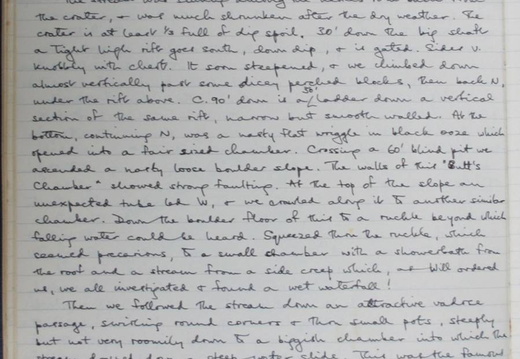 the crater, & was much shrunken after the dry weather. The
crater is at least ½ full of dip spoil. 30' down the big shaft
a tight high rift goes south, down dip, & is gated. Sides v.
knobbly with chert. It soon steepened, & we climbed down
almost vertically past some dicey perched blocks, then back N,
under the rift above. C. 90' down is a 30' ladder down a vertical
section of the same rift, narrow but smooth walled. At the
bottom, continuing N, was a nasty flat wriggle in black ooze which
opened into a fair sized chamber. Crossing a 60' blind pit we
ascended a nasty loose boulder slope. The walls of this "Butt's
Chamber" showed strong faulting. At the top of the slope an
unexpected tube led W, & we crawled along it to another similar
chamber. Down the boulder floor of this to a ruckle beyond which
falling water could be heard. Squeezed thro the ruckle, which
seemed precarious, to a small chamber with a showerbath from
the roof and a stream from a side creep which, as Will ordered
us, we all investigated & found a wet waterfall!
Then we followed the stream down an attractive vadose
passage, swirling round corners & thro small pots, steeply
but not very roomily down to a biggish chamber into which the
down a steep water slide. This was the famous